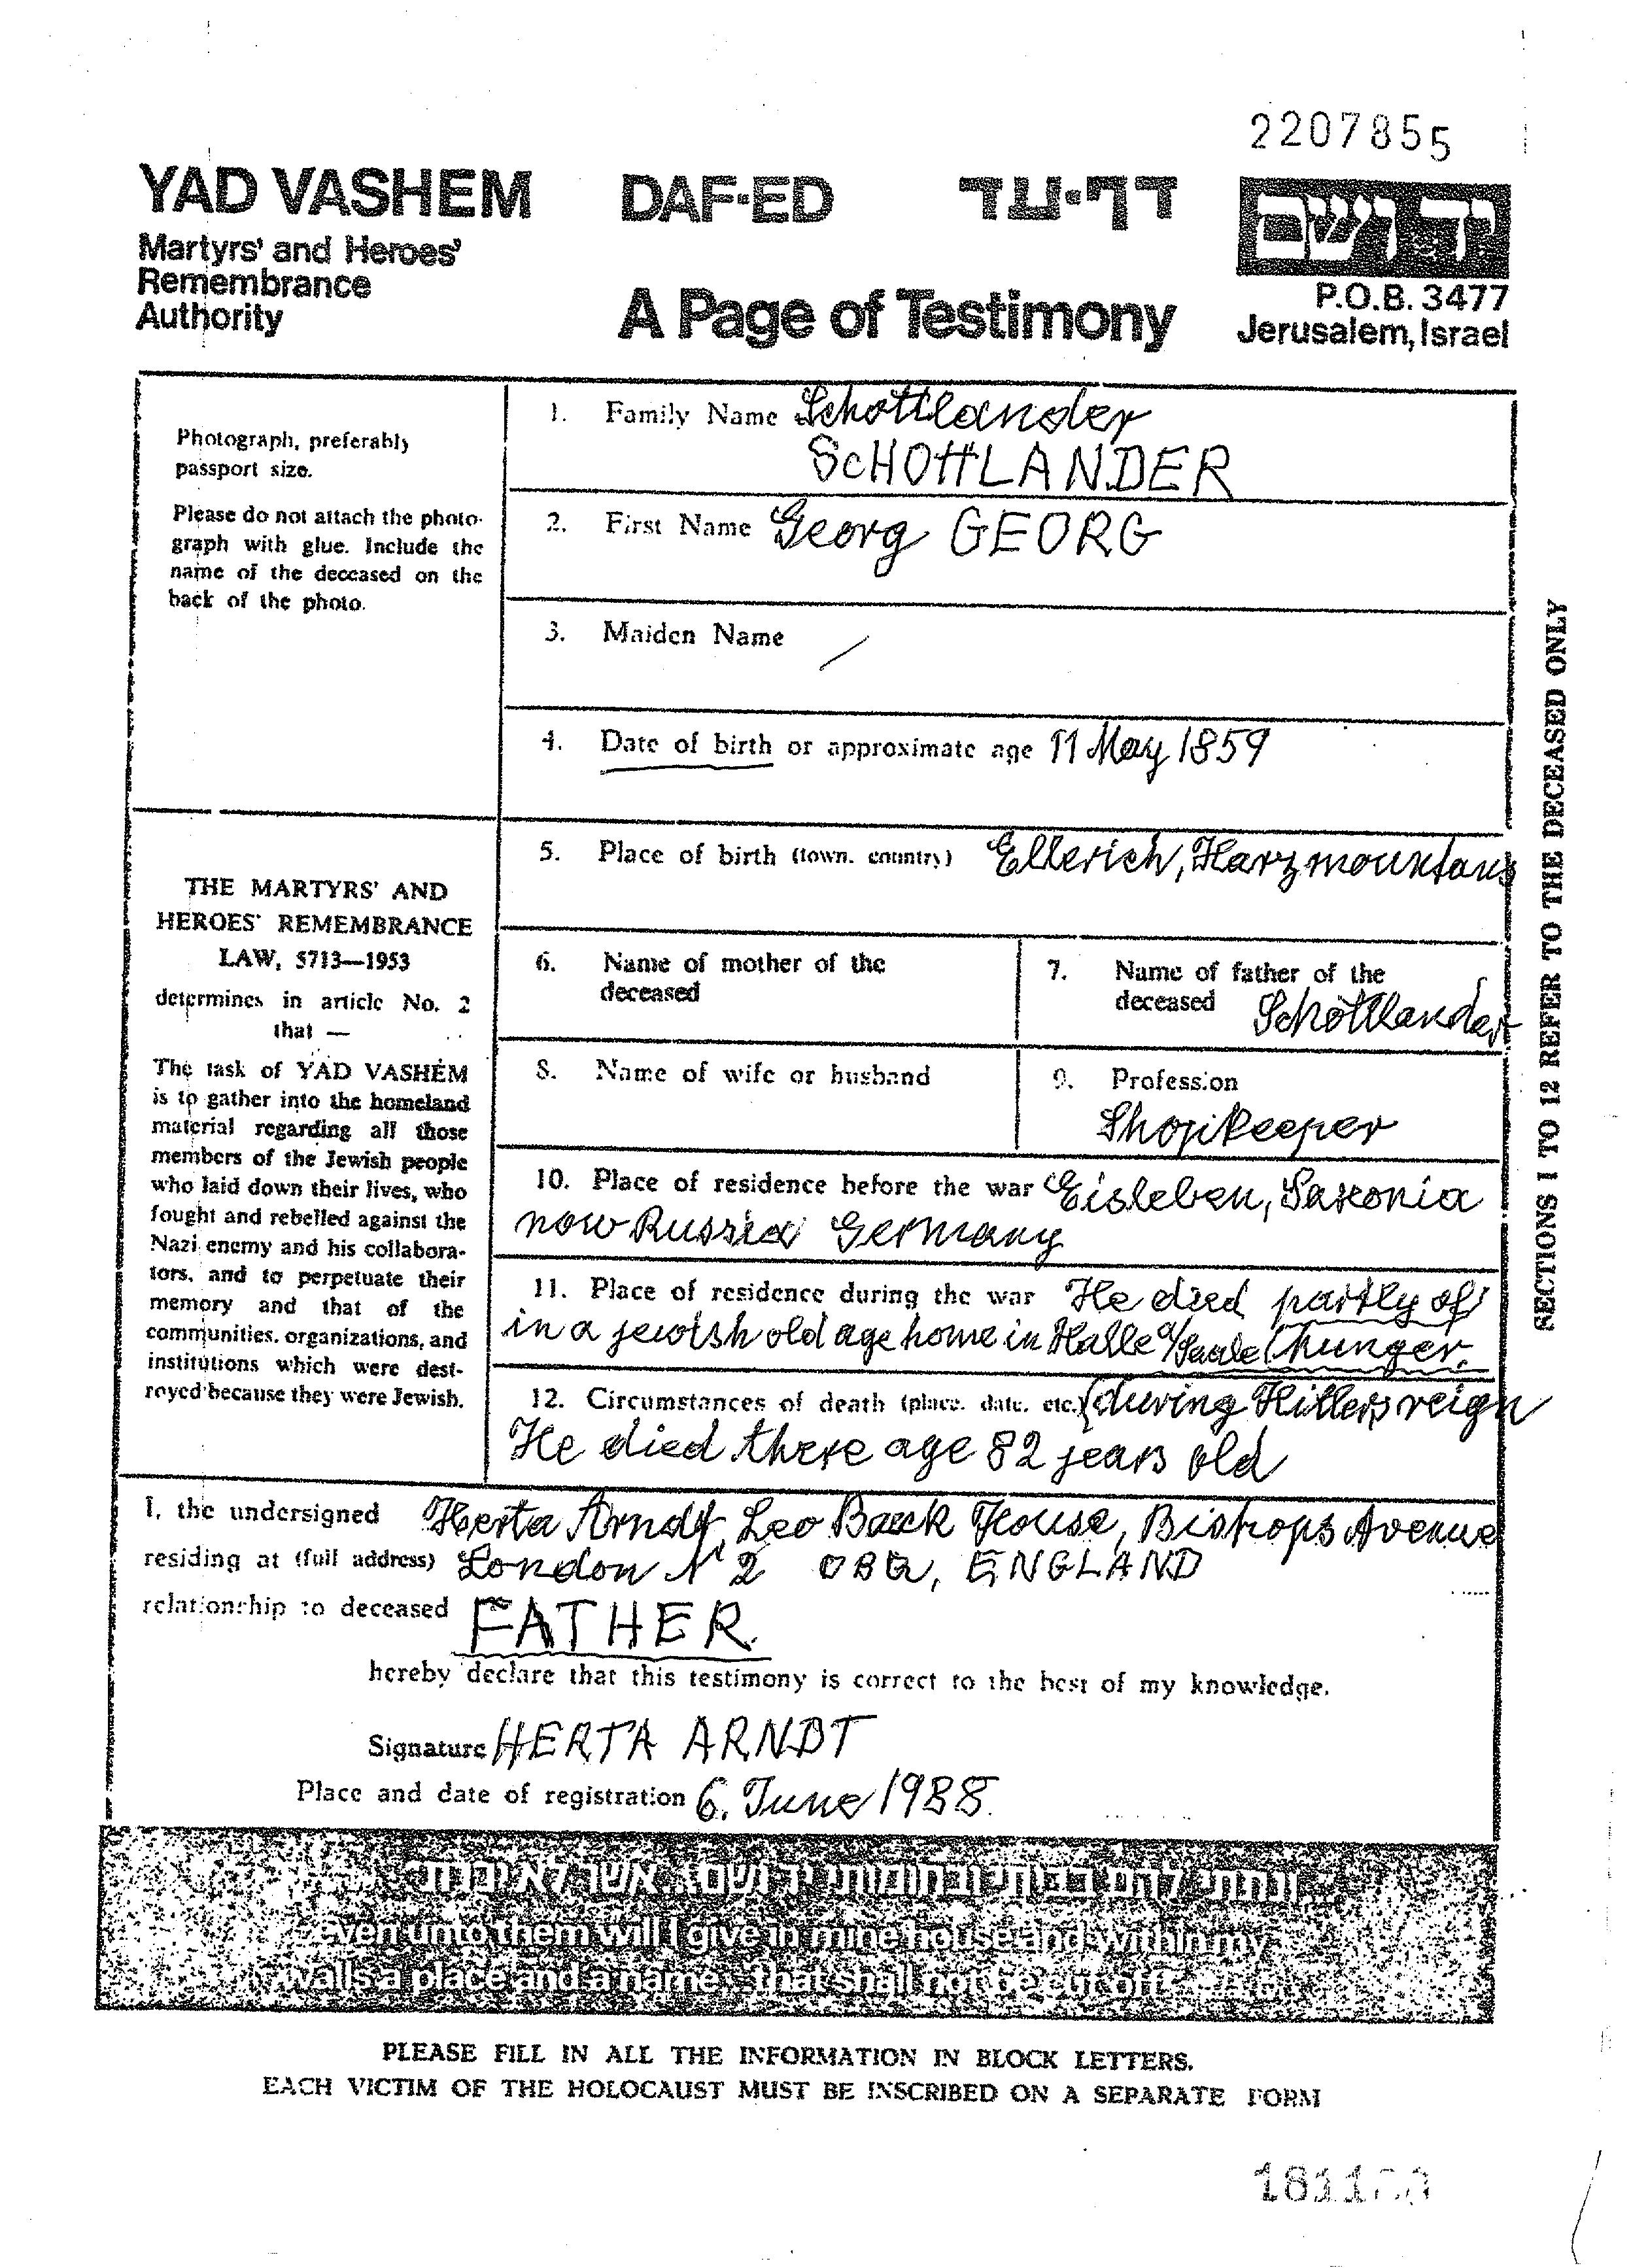 2207855
YAD VASHEM DAF-ED דף-עד ידושם
Martyrs' and Heroes'
Remembrance
Authority
A Page of Testimony
P.O.B. 3477
Jerusalem, Israel
Photograph, preferably
passport size.
Please do not attach the photo-
graph with glue. Include the
name of the deceased on the
back of the photo.
THE MARTYRS' AND
HEROES' REMEMBRANCE
LAW, 5713—1953
determines in article No. 2
that —
The task of YAD VASHEM
is to gather into the homeland
material regarding all those
members of the Jewish people
who laid down their lives, who
fought and rebelled against the
Nazi enemy and his collabora-
tors, and to perpetuate their
memory and that of the
communities, organizations, and
institutions which were dest-
royed because they were Jewish.
1. Family Name Schottlander
SCHOTTLANDER
2. First Name Georg GEORG
3. Maiden Name /
4. Date of birth or approximate age 11 May 1859
5. Place of birth (town, country) Ellerich, Harzmountans
6. Name of mother of the
deceased
7. Name of father of the
deceased Schottlander
8. Name of wife or husband
9. Profession
Shopkeeper
10. Place of residence before the war Eisleben, Saxonia
now Russia Germany
11. Place of residence during the war He died partly of
in a jewish old age home in Halle a/Saale (hunger.
12. Circumstances of death (place, date, etc.) (during Hitlers reign
He died there age 82 jears old
SECTIONS 1 TO 12 REFER TO THE DECEASED ONLY
I, the undersigned Herta Arndt, Leo Baeck House, Bishops Avenue
residing at (full address) London N 2 0BG, ENGLAND
relationship to deceased FATHER.
hereby declare that this testimony is correct to the best of my knowledge.
Signature HERTA ARNDT
Place and date of registration 6. June 1988.
ונתתי להם בביתי ובחומותי יד ושם... אשר לא יכרת
...even unto them will I give in mine house and within my
walls a place and a name... that shall not be cut off.
PLEASE FILL IN ALL THE INFORMATION IN BLOCK LETTERS.
EACH VICTIM OF THE HOLOCAUST MUST BE INSCRIBED ON A SEPARATE FORM